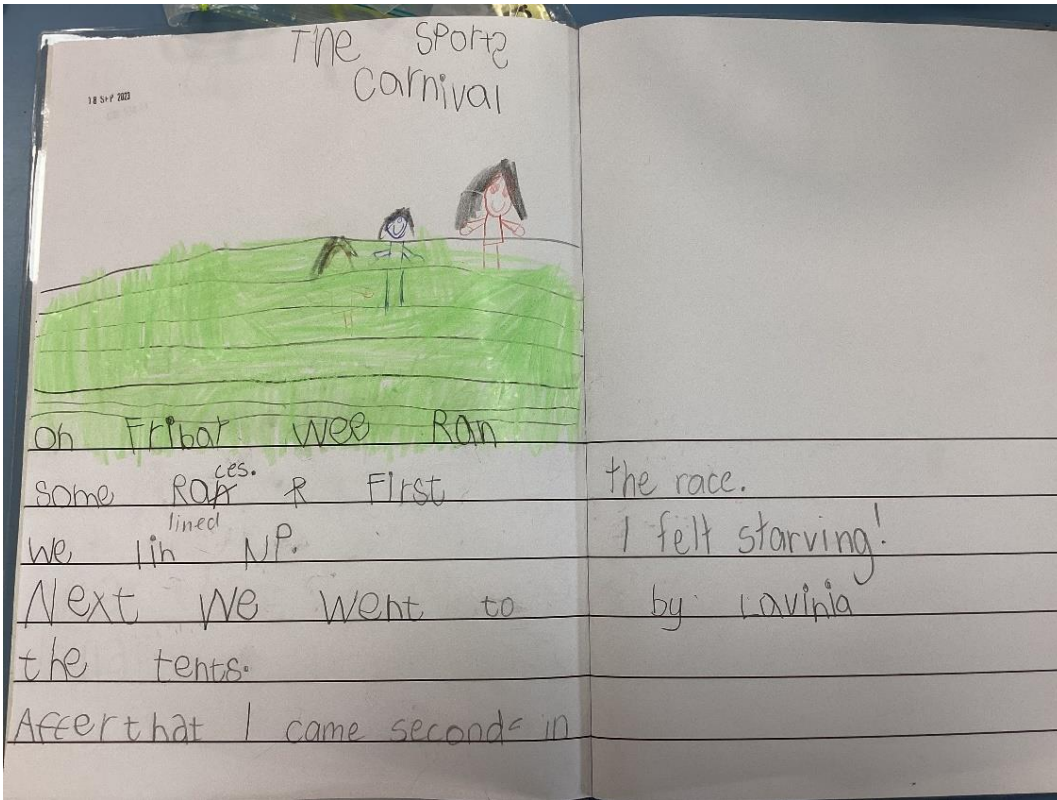 The Sports
Carnival
18 SEP 2023
on Fribat wee Ran
some Races. First
lined
we lin NP.
Next We went to
the tents.
After that I came second in
the race.
I felt starving!
by Lavinia